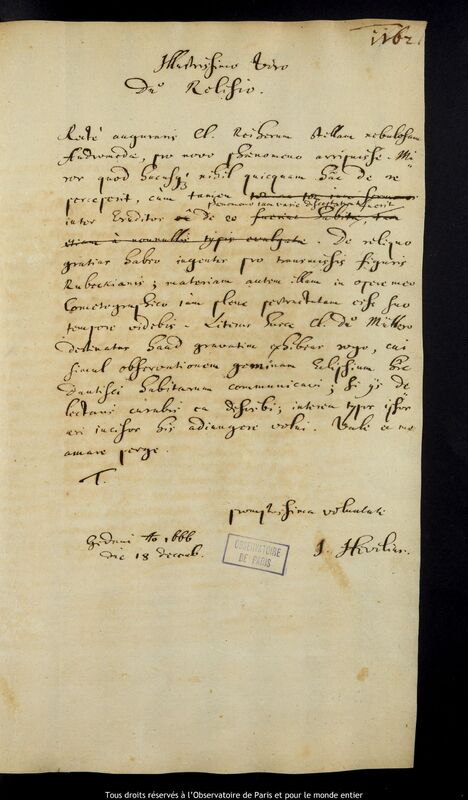 1162.
Illustrissimo Viro
Dno Relisio.
Recte auguraris Cl. Reiherum stellam nebulosam
Andromedæ, pro novo phænomeno arripuisse. Mi-
ror quod hactenus nihil quicquam hac de re
perceperit, cum tamen
phænomeno tam varie disceptatum fuerit
inter Eruditos de eo fuerint habita,
etiam à nonnullis typis evulgata. De reliquo
gratias habeo ingentes pro transmissis figuris
Rubeckianis; materiam autem illam in opere meo
Cometographico jam plene pertractatam esse suo
tempore videbis. Literas hasce Cl. Dno Müllero
destinatas haud gravatim exhibeas rogo, cui
simul observationem geminam Eclipsium hic
Dantisci habitarum communicavi; si is de-
lectaris curabis ea describi; interea typos
æri incisos his adiungere volui. Vale et me
amare perge.
T.
promptissima voluntate
Gedani Ao 1666
die 18 decemb.
J. Hevelius.
OBSERVATOIRE
DE PARIS
Tous droits réservés à l'Observatoire de Paris et pour le monde entier